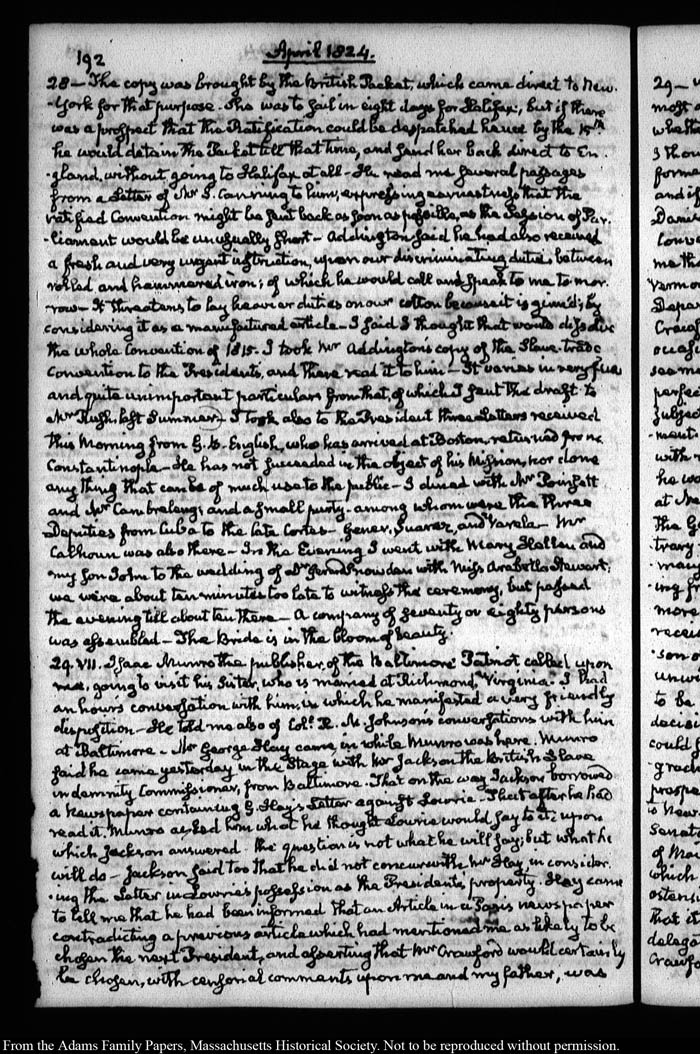 192
April 1824.
28 – The copy was brought by the British Packet, which came direct to New-
-York for that purpose. She was to sail in eight days for Halifax; but if there
was a prospect that the Ratification could be despatched hence by the 15th
he would detain the Packet till that time, and send her back direct to En-
-gland, without going to Halifax at all – He read me several passages
from a Letter of Mr G. Canning to him, expressing earnestness that the
ratified Convention might be sent back as soon as possible, as the Session of Par-
-liament would be unusually short – Addington said he had also received
a fresh and very urgent instruction, upon our discriminating duties between
rolled and hammered iron; of which he would call and speak to me to-mor-
row – It threatens to lay heavier duties on our cotton because it is ginned; by
considering it as a manufactured article – I said I thought that would dissolve
the whole Convention of 1815. I took Mr Addington's copy of the Slave-trade
Convention to the President's, and there read it to him – It varies in very few
and quite unimportant particulars from that, of which I sent the draft to
Mr Rush last Summer – I took also to the President three Letters received
this Morning from G. B. English, who has arrived at Boston, returned from
Constantinople – He has not succeeded in the object of his Mission, nor done
any thing that can be of much use to the public – I dined with Mr Poinsett
and Mr Cambreleng; and a small party – among whom were the three
Deputies from Cuba to the late Cortes – Gener, Suarez, and Varela – Mr
Calhoun was also there – In the Evening I went with Mary Hellen and
my son John to the wedding of Dr Snowden with Miss Arabella Stewart;
we were about ten minutes too late to witness the ceremony, but passed
the evening till about ten there – A company of seventy or eighty persons
was assembled – The Bride is in the bloom of beauty.
29. VII. Isaac Munro the publisher of the Baltimore Patriot called upon
me, going to visit his Sister, who is married at Richmond, Virginia. I had
an hour's conversation with him; in which he manifested a very friendly
disposition – He told me also of Coll. R. M. Johnson's conversations with him
at Baltimore – Mr George Hay came in while Munro was here. Munro
said he came yesterday in the Stage with Mr Jackson the British Slave
indemnity Commissioner, from Baltimore. That on the way Jackson borrowed
a Newspaper containing G. Hay's Letter against Lowrie – That after he had
read it, Munro asked him what he thought Lowrie would say to it; upon
which Jackson answered – the question is not what he will say; but what he
will do – Jackson said too that he did not concur with Mr Hay, in consider-
-ing the Letter in Lowrie's possession as the President's property. Hay came
to tell me that he had been informed that an Article in a Paris newspaper
contradicting a previous article which had mentioned me as likely to be
chosen the next President, and asserting that Mr Crawford would certainly
be chosen, with censorial comments upon me and my father, was
29 –
most
form
and if
me th
Vermon
perfec
with
he wo
at Ne
the G
more
recei
to be
could f
prospe
Senat
of Ma
which
ostens
that it
delega
Crawfo
From the Adams Family Papers, Massachusetts Historical Society. Not to be reproduced without permission.